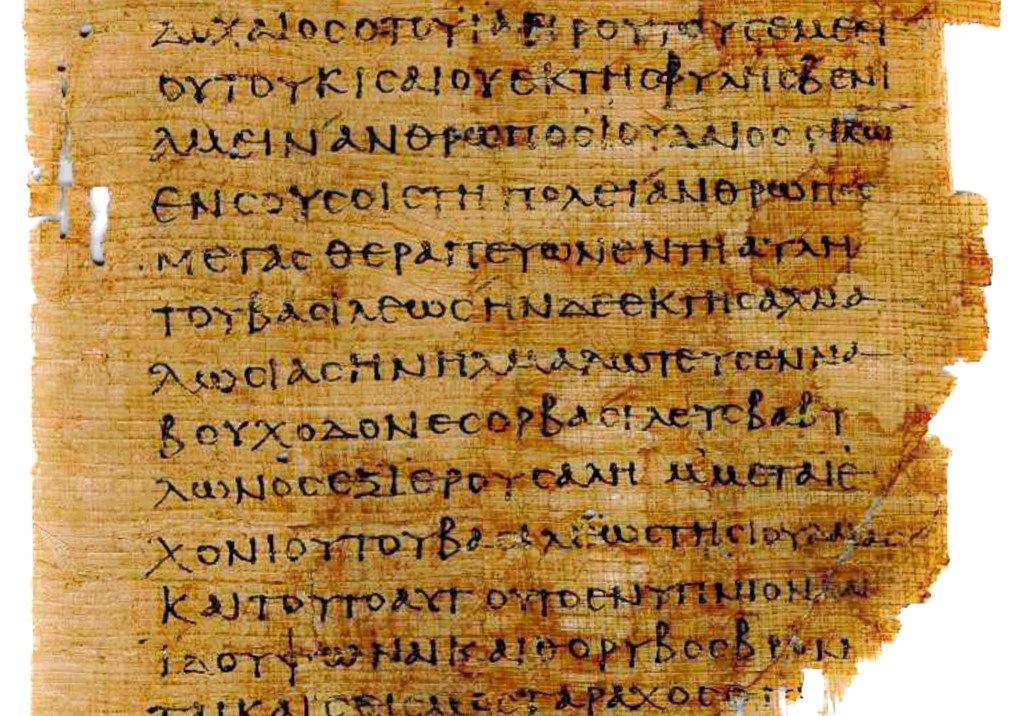 ΔΟΧΑΙΟϹΟΤΟΥΙΑΕΙΡΟΥΤΟΥϹΕΜΕΕΙ
ΟΥΤΟΥΚΙϹΑΙΟΥΕΚΤΗϹΦΥΛΗϹΒΕΝΙ
ΑΜΕΙΝΑΝΘΡΩΠΟϹΙΟΥΔΑΙΟϹΟΙΚΩ
ΕΝϹΟΥϹΟΙϹΤΗΠΟΛΕΙΑΝΘΡΩΠΟϹ
ΜΕΓΑϹΘΕΡΑΠΕΥΩΝΕΝΤΗΑΥΛΗ
ΤΟΥΒΑϹΙΛΕΩϹΗΝΔΕΕΚΤΗϹΑΧΜΑ
ΛΩϹΙΑϹΗΝΗΧΜΑΛΩΤΕΥϹΕΝΝΑ
ΒΟΥΧΟΔΟΝΕϹΟΡΒΑϹΙΛΕΥϹΒΑΒΥ
ΛΩΝΟϹΕΞΙΕΡΟΥϹΑΛΗΜΜΕΤΑΙΕ
ΧΟΝΙΟΥΤΟΥΒΑϹΙΛΕΩϹΤΗϹΙΟΥΔΑΙΑϹ
ΚΑΙΤΟΥΤΟΑΥΤΟΥΤΟΕΝΥΠΝΙΟΝΚΑΙ
ΙΔΟΥΦΩΝΑΙΚΑΙΘΟΡΥΒΟϹΒΡΟΝ
ΤΑΙΚΑΙϹΕΙϹΜΟϹΤΑΡΑΧΟϹ